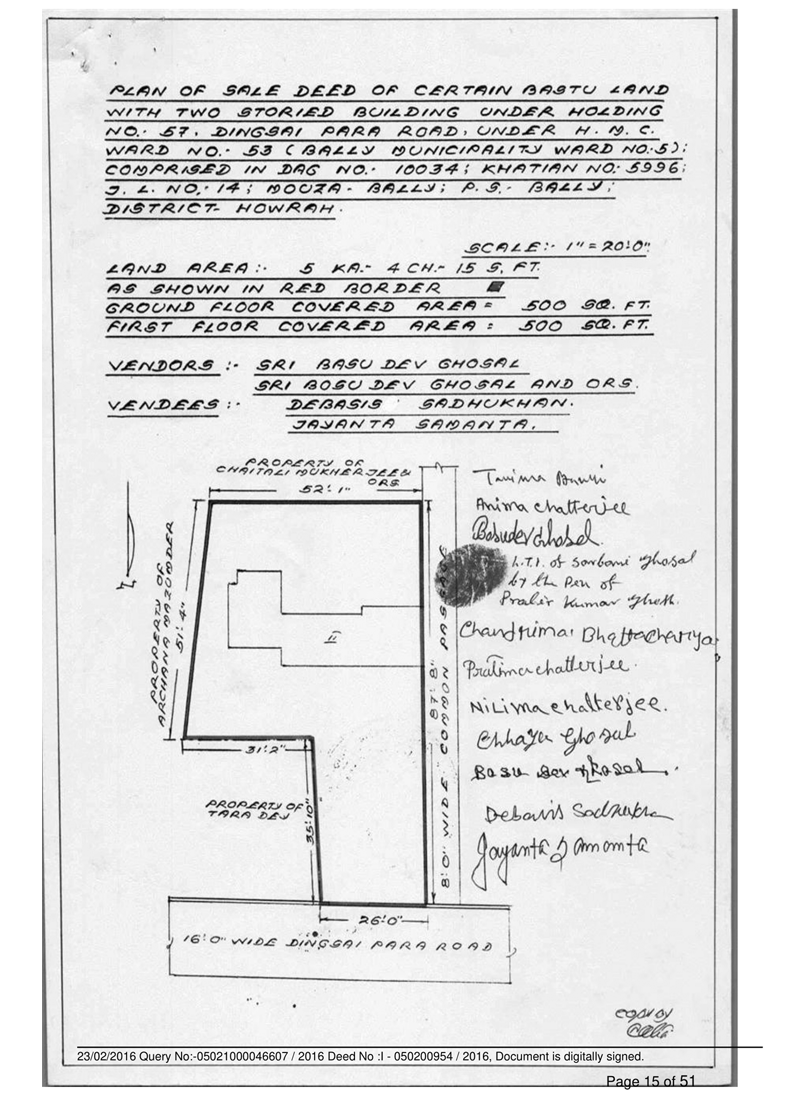 PLAN OF SALE DEED OF CERTAIN BASTU LAND
WITH TWO STORIED BUILDING UNDER HOLDING
NO.- 57, DINGSAI PARA ROAD, UNDER H. M. C.
WARD NO.- 53 (BALLY MUNICIPALITY WARD NO.-5);
COMPRISED IN DAG NO.- 10034; KHATIAN NO:- 5996;
J. L. NO.- 14; MOUZA- BALLY; P. S.- BALLY;
DISTRICT- HOWRAH.
SCALE:- 1"= 20'.0"
LAND AREA:- 5 KA.- 4 CH.- 15 S. FT.
AS SHOWN IN RED BORDER
GROUND FLOOR COVERED AREA = 500 SQ. FT.
FIRST FLOOR COVERED AREA = 500 SQ. FT.
VENDORS :- SRI BASU DEV GHOSAL
SRI BOSU DEV GHOSAL AND ORS.
VENDEES :- DEBASIS SADHUKHAN.
JAYANTA SAMANTA.
PROPERTY OF
CHAITALI MUKHERJEE &
ORS
52'.1"
PROPERTY OF
ARCHANA MAZUMDER
51'.4"
II
87'.8"
8'.0" WIDE COMMON PASSAGE
31'.2"
PROPERTY OF
TARA DEY
35'.10"
26'.0"
16'.0" WIDE DINGSAI PARA ROAD
Anima chatterjee
Basudev Ghosal.
L.T.I. of Sorboni Ghosal
by the Pen of
Prabir Kumar Ghosh.
Chandrima Bhattacharya
Pratima chatterjee.
Nilima chatterjee.
Chhaya Ghosal
Basu Dev Ghosal.
Debasis Sadhukha
Jayanta Samanta
COPY BY
23/02/2016 Query No:-05021000046607 / 2016 Deed No :I - 050200954 / 2016, Document is digitally signed.
Page 15 of 51